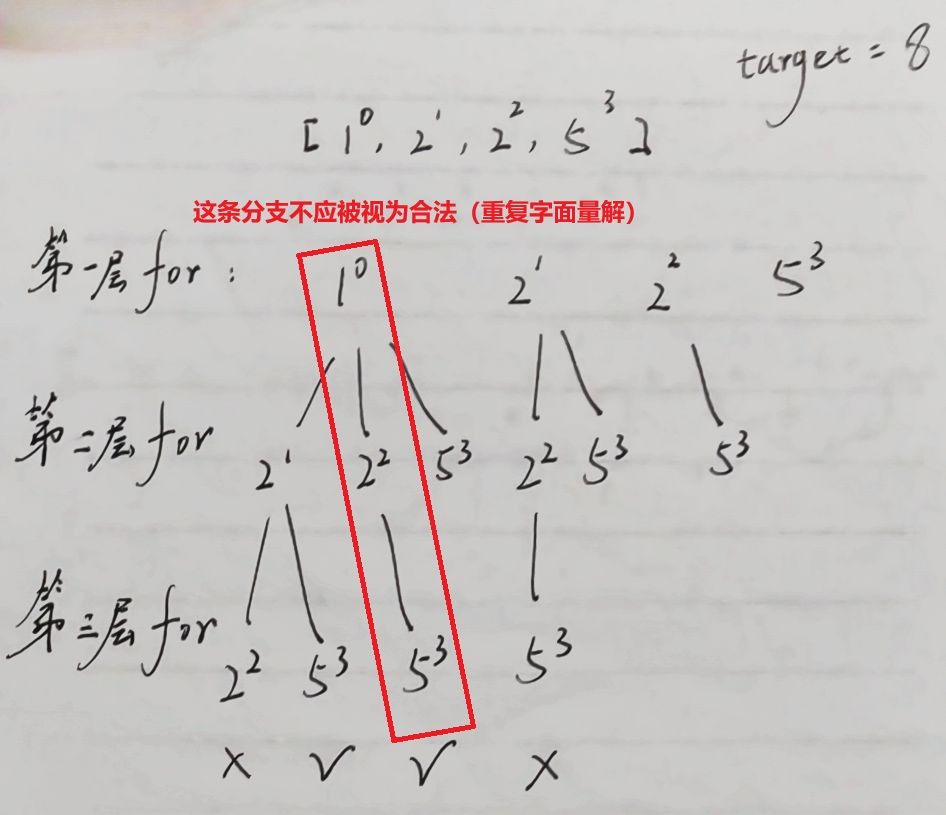 target = 8
[ 1⁰, 2¹, 2², 5³ ]
这条分支不应被视为合法（重复字面量解）
第一层for: 1⁰ 2¹ 2² 5³
第二层for 2¹ 2² 5³ 2² 5³ 5³
第三层for 2² 5³ 5³ 5³
× √ √ ×